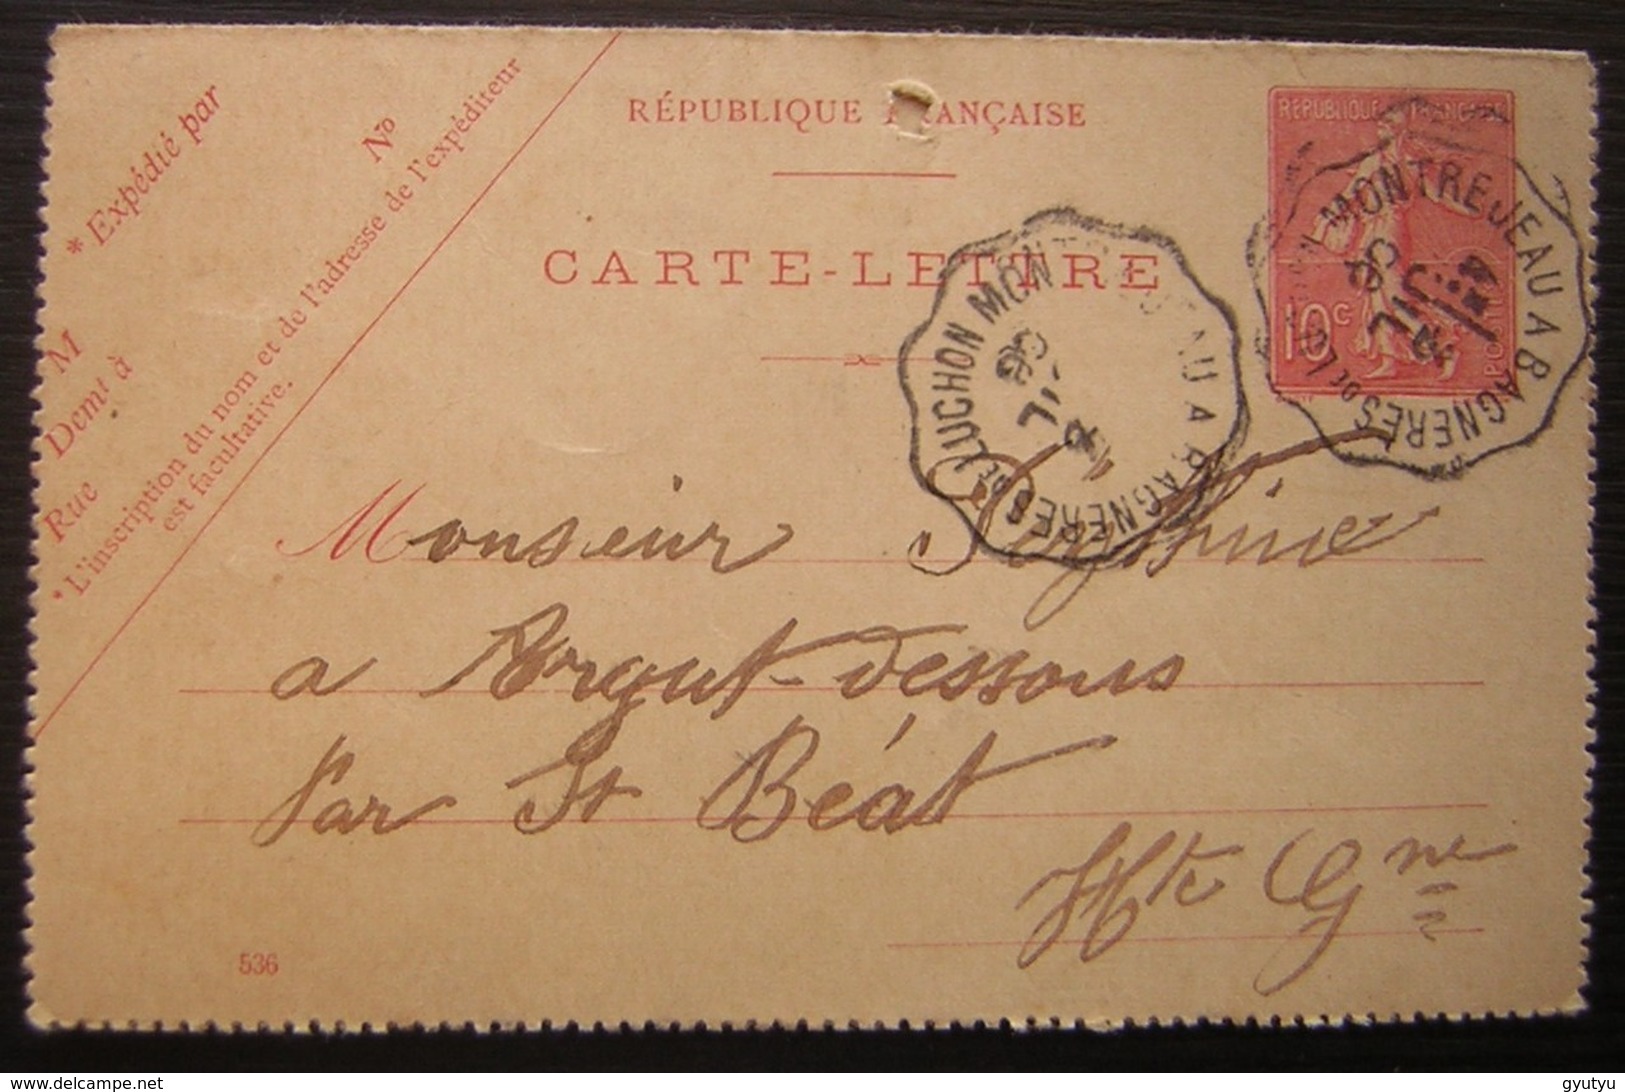 * Expédié par
M
Nº
Demt à
Rue
* L'inscription du nom et de l'adresse de l'expéditeur
est facultative.
RÉPUBLIQUE FRANÇAISE
CARTE-LETTRE
REPUBLIQUE FRANÇAISE
10c
MONTREJEAU A BAGNERES DE LUCHON
JUIL
06
MONTREJEAU A BAGNERES DE LUCHON
JUIL
06
Monseiur
a Argut-dessous
Par St Béat
Hte Gne
536
delcampe.net
gyutyu